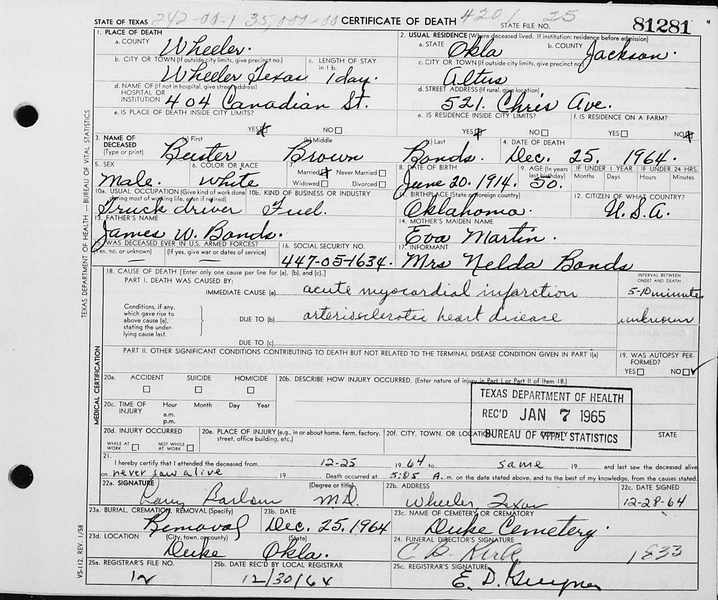 STATE OF TEXAS 242-00-1 35,000-00 CERTIFICATE OF DEATH 420/ 25 STATE FILE NO. 81281
1. PLACE OF DEATH
a. COUNTY Wheeler.
2. USUAL RESIDENCE (Where deceased lived. If institution: residence before admission)
a. STATE Okla b. COUNTY Jackson.
b. CITY OR TOWN (If outside city limits, give precinct no.) Wheeler Texas
c. LENGTH OF STAY in 1 b. 1 day.
c. CITY OR TOWN (If outside city limits, give precinct no.) Altus
d. NAME OF (If not in hospital, give street address) HOSPITAL OR INSTITUTION 404 Canadian St.
d. STREET ADDRESS (If rural, give location) 521. Chris Ave.
e. IS PLACE OF DEATH INSIDE CITY LIMITS? YES NO
e. IS RESIDENCE INSIDE CITY LIMITS? YES NO
f. IS RESIDENCE ON A FARM? YES NO
3. NAME OF DECEASED (Type or print)
(a) First Buster
(b) Middle Brown
(c) Last Bonds.
4. DATE OF DEATH Dec. 25, 1964.
5. SEX Male.
6. COLOR OR RACE White
7. Married Never Married Widowed Divorced
8. DATE OF BIRTH June 20. 1914.
9. AGE (In years last birthday) 50.
IF UNDER 1 YEAR Months Days
IF UNDER 24 HRS. Hours Minutes
10a. USUAL OCCUPATION (Give kind of work done during most of working life, even if retired) Truck driver
10b. KIND OF BUSINESS OR INDUSTRY Fuel.
11. BIRTHPLACE (State or foreign country) Oklahoma.
12. CITIZEN OF WHAT COUNTRY? U.S.A.
13. FATHER'S NAME James W. Bonds.
14. MOTHER'S MAIDEN NAME Eva Martin.
15. WAS DECEASED EVER IN U.S. ARMED FORCES?
(Yes, no or unknown) — (If yes, give war or dates of service) —
16. SOCIAL SECURITY NO. 447-05-1634.
17. INFORMANT Mrs Nelda Bonds
18. CAUSE OF DEATH [Enter only one cause per line for (a), (b), and (c).]
INTERVAL BETWEEN ONSET AND DEATH
PART I. DEATH WAS CAUSED BY:
IMMEDIATE CAUSE (a) acute myocardial infarction 5-10 minutes
Conditions, if any, which gave rise to above cause (a), stating the underlying cause last.
DUE TO (b) arteriosclerotic heart disease unknown
DUE TO (c)
PART II. OTHER SIGNIFICANT CONDITIONS CONTRIBUTING TO DEATH BUT NOT RELATED TO THE TERMINAL DISEASE CONDITION GIVEN IN PART I(a)
19. WAS AUTOPSY PERFORMED? YES NO
20a. ACCIDENT SUICIDE HOMICIDE
20b. DESCRIBE HOW INJURY OCCURRED. (Enter nature of injury in Part I or Part II of Item 18.)
20c. TIME OF INJURY Hour a.m. p.m. Month Day Year
TEXAS DEPARTMENT OF HEALTH
REC'D JAN 7 1965
BUREAU OF VITAL STATISTICS
20d. INJURY OCCURRED WHILE AT WORK NOT WHILE AT WORK
20e. PLACE OF INJURY (e.g., in or about home, farm, factory, street, office building, etc.)
20f. CITY, TOWN, OR LOCATION STATE
21. I hereby certify that I attended the deceased from 12-25 1964 to same 19 and last saw the deceased alive
on never saw alive 19 Death occurred at 5:25 A. m. on the date stated above, and to the best of my knowledge, from the causes stated.
22a. SIGNATURE (Degree or title) M.D.
22b. ADDRESS Wheeler Texas
22c. DATE SIGNED 12-28-64
23a. BURIAL, CREMATION, REMOVAL (Specify) Removal
23b. DATE Dec. 25, 1964
23c. NAME OF CEMETERY OR CREMATORY Duke Cemetery.
23d. LOCATION (City, town, or county) (State) Duke Okla.
24. FUNERAL DIRECTOR'S SIGNATURE C B. Kirk 1833
25a. REGISTRAR'S FILE NO. 12
25b. DATE REC'D BY LOCAL REGISTRAR 12/30/64
25c. REGISTRAR'S SIGNATURE E. D.
TEXAS DEPARTMENT OF HEALTH — BUREAU OF VITAL STATISTICS
MEDICAL CERTIFICATION
VS-112 REV. 1/58